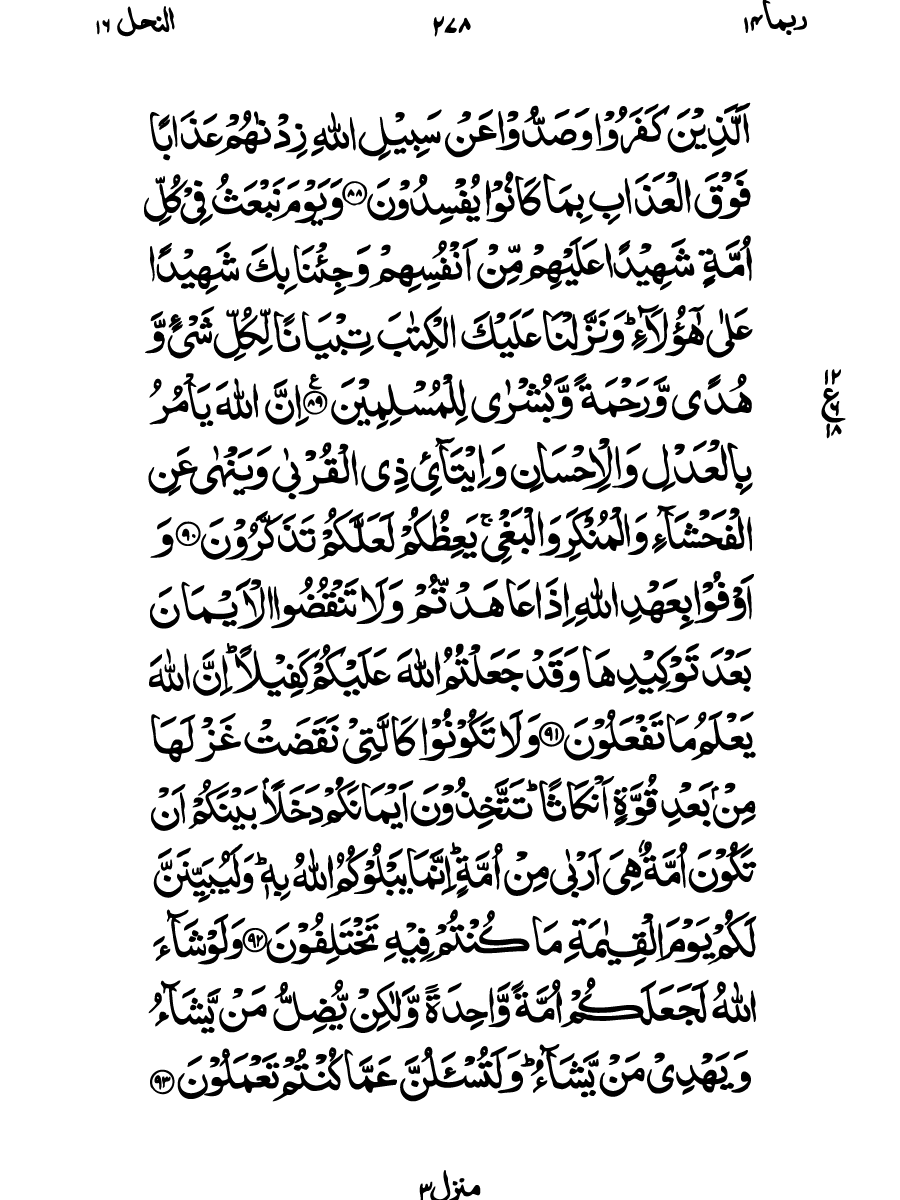 ربما ١٤ ٢٧٨ النحل ١٦
اَلَّذِيْنَ كَفَرُوْا وَصَدُّوْا عَنْ سَبِيْلِ اللّٰهِ زِدْنٰهُمْ عَذَابًا
فَوْقَ الْعَذَابِ بِمَا كَانُوْا يُفْسِدُوْنَ ﴿٨٨﴾ وَيَوْمَ نَبْعَثُ فِيْ كُلِّ
اُمَّةٍ شَهِيْدًا عَلَيْهِمْ مِّنْ اَنْفُسِهِمْ وَجِئْنَا بِكَ شَهِيْدًا
عَلٰى هٰٓؤُلَآءِ ؕ وَنَزَّلْنَا عَلَيْكَ الْكِتٰبَ تِبْيَانًا لِّكُلِّ شَىْءٍ وَّ
هُدًى وَّرَحْمَةً وَّبُشْرٰى لِلْمُسْلِمِيْنَ ﴿٨٩﴾ اِنَّ اللّٰهَ يَاْمُرُ
١٢ ع ٦ ١٨
بِالْعَدْلِ وَالْاِحْسَانِ وَاِيْتَآئِ ذِى الْقُرْبٰى وَيَنْهٰى عَنِ
الْفَحْشَآءِ وَالْمُنْكَرِ وَالْبَغْيِ ۚ يَعِظُكُمْ لَعَلَّكُمْ تَذَكَّرُوْنَ ﴿٩٠﴾ وَ
اَوْفُوْا بِعَهْدِ اللّٰهِ اِذَا عَاهَدْتُّمْ وَلَا تَنْقُضُوا الْاَيْمَانَ
بَعْدَ تَوْكِيْدِهَا وَقَدْ جَعَلْتُمُ اللّٰهَ عَلَيْكُمْ كَفِيْلًا ؕ اِنَّ اللّٰهَ
يَعْلَمُ مَا تَفْعَلُوْنَ ﴿٩١﴾ وَلَا تَكُوْنُوْا كَالَّتِيْ نَقَضَتْ غَزْلَهَا
مِنْۢ بَعْدِ قُوَّةٍ اَنْكَاثًا ؕ تَتَّخِذُوْنَ اَيْمَانَكُمْ دَخَلًاۢ بَيْنَكُمْ اَنْ
تَكُوْنَ اُمَّةٌ هِىَ اَرْبٰى مِنْ اُمَّةٍ ؕ اِنَّمَا يَبْلُوْكُمُ اللّٰهُ بِهٖ ؕ وَلَيُبَيِّنَنَّ
لَكُمْ يَوْمَ الْقِيٰمَةِ مَا كُنْتُمْ فِيْهِ تَخْتَلِفُوْنَ ﴿٩٢﴾ وَلَوْ شَآءَ
اللّٰهُ لَجَعَلَكُمْ اُمَّةً وَّاحِدَةً وَّلٰكِنْ يُّضِلُّ مَنْ يَّشَآءُ
وَيَهْدِيْ مَنْ يَّشَآءُ ؕ وَلَتُسْـَٔلُنَّ عَمَّا كُنْتُمْ تَعْمَلُوْنَ ﴿٩٣﴾
منزل ٣